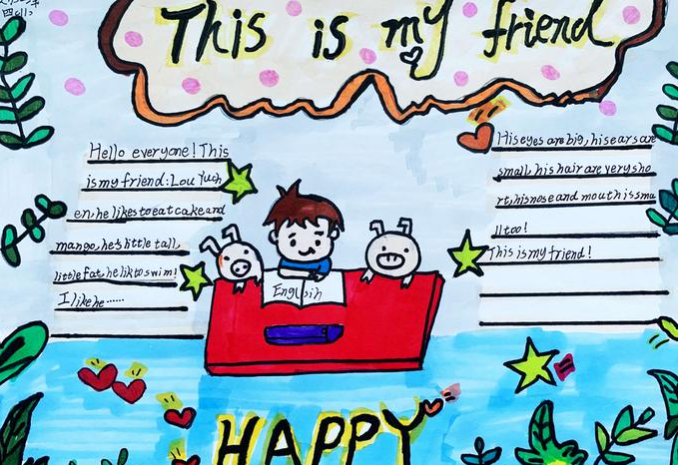 This is my friend
Hello everyone! This
is my friend: Lou Yuch
en, he likes to eat cake and
mango, he's little tall,
little fat, he lik to swim!
I like he ......
His eyes are big, his ears are
small, his hair are very sho
rt, his nose and mouth is sma
ll too!
This is my friend!
English
HAPPY